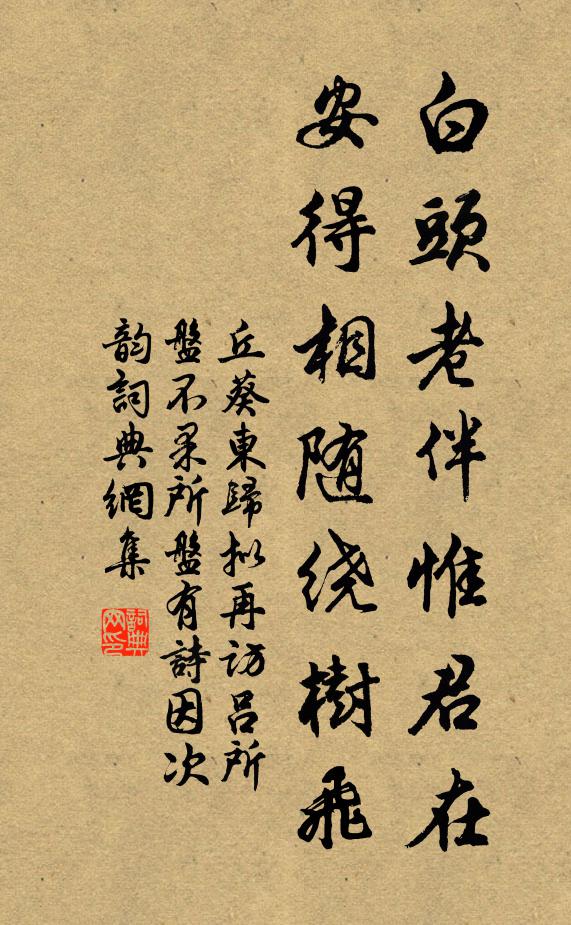 白頭老伴惟君在
安得相随绕樹飛
丘葵東歸拟再访吕所
盤不果所盤有詩因次
韵詞典網集
詞典
网印